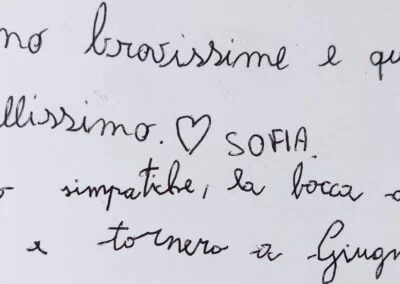 no brovissime e qu
llissimo. ♡ SOFIA.
o simpatiche, la bocca a
e tornero a Giugn